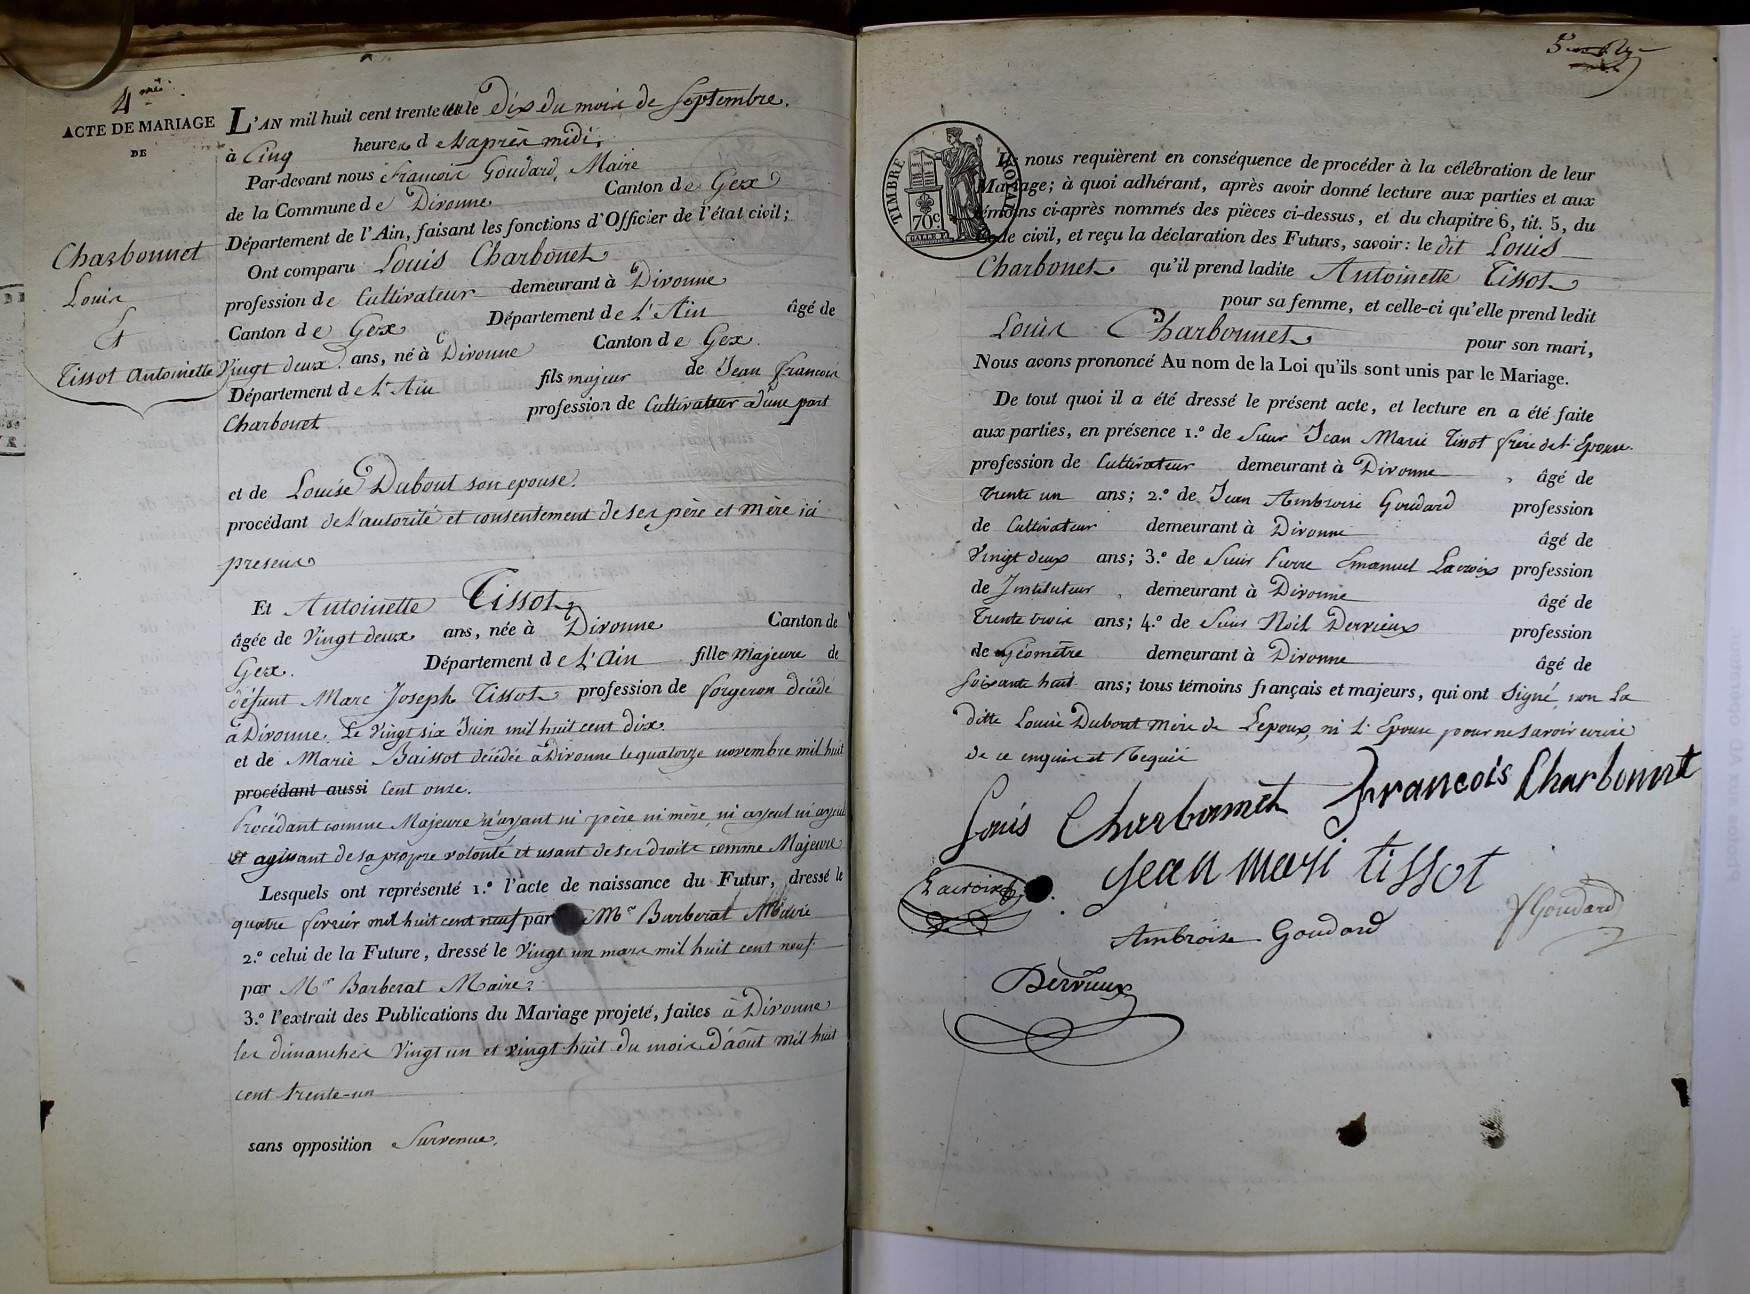 4me
ACTE DE MARIAGE
DE
Charbonnet
Louis
Et
Tissot Antoinette
L'AN mil huit cent trente un le Dix du mois de Septembre.
à Cinq heures d e l'après midi,
Par-devant nous François Goudard, Maire
de la Commune de Divonne Canton de Gex
Département de l'Ain, faisant les fonctions d'Officier de l'état civil;
Ont comparu Louis Charbonet
profession de Cultivateur demeurant à Divonne
Canton de Gex Département de L'Ain âgé de
Vingt deux ans, né à Divonne Canton de Gex.
Département de L'Ain fils majeur de Jean françois
Charbonet profession de Cultivateur d'une part
et de Louise Dubout son epouse.
procédant de l'autorité et consentement de ses père et mère ici
presens
Et Antoinette Tissot
âgée de Vingt deux ans, née à Divonne Canton de
Gex. Département de L'Ain fille Majeure de
défunt Marc Joseph Tissot profession de forgeron décédé
à Divonne Le Vingt six Juin mil huit cent dix.
et de Marie Baissot décédée à Divonne le quatorze novembre mil huit
procédant aussi cent onze.
Procédant comme Majeure n'ayant ni père ni mère, ni ayeul ni ayeule
et agissant de sa propre volonté et usant de ses droits comme Majeure
Lesquels ont représenté 1.º l'acte de naissance du Futur, dressé le
quatre fevrier mil huit cent neuf par Mr Barberat Maire
2.º celui de la Future, dressé le Vingt un mars mil huit cent neuf
par Mr Barberat Maire
3.º l'extrait des Publications du Mariage projeté, faites à Divonne
les dimanches Vingt un et vingt huit du mois d'août mil huit
cent trente-un
sans opposition Survenue.
TIMBRE ROYAL
70c
Ils nous requièrent en conséquence de procéder à la célébration de leur
Mariage; à quoi adhérant, après avoir donné lecture aux parties et aux
témoins ci-après nommés des pièces ci-dessus, et du chapitre 6, tit. 5, du
Code civil, et reçu la déclaration des Futurs, savoir: le dit Louis
Charbonet qu'il prend ladite Antoinette Tissot
pour sa femme, et celle-ci qu'elle prend ledit
Louis Charbonnet pour son mari,
Nous avons prononcé Au nom de la Loi qu'ils sont unis par le Mariage.
De tout quoi il a été dressé le présent acte, et lecture en a été faite
aux parties, en présence 1.º de Sieur Jean Marie Tissot frère de l'Epouse.
profession de Cultivateur demeurant à Divonne âgé de
Trente un ans; 2.º de Jean Ambroise Goudard profession
de Cultivateur demeurant à Divonne âgé de
Vingt deux ans; 3.º de Sieur Pierre Emanuel Lacroix profession
de Instituteur demeurant à Divonne âgé de
Trente trois ans; 4.º de Sieur Noël Derrieux profession
de Géomètre demeurant à Divonne âgé de
Soixante huit ans; tous témoins français et majeurs, qui ont Signé, non La
ditte Louise Dubout mère de L'epoux, ni L'Epouse pour ne savoir ecrire
de ce enquise et Requise
Louis Charbonnet François Charbonnet
Jean Mari tissot
Lacroix
fGoudard
Ambroise Goudard
Derrieux